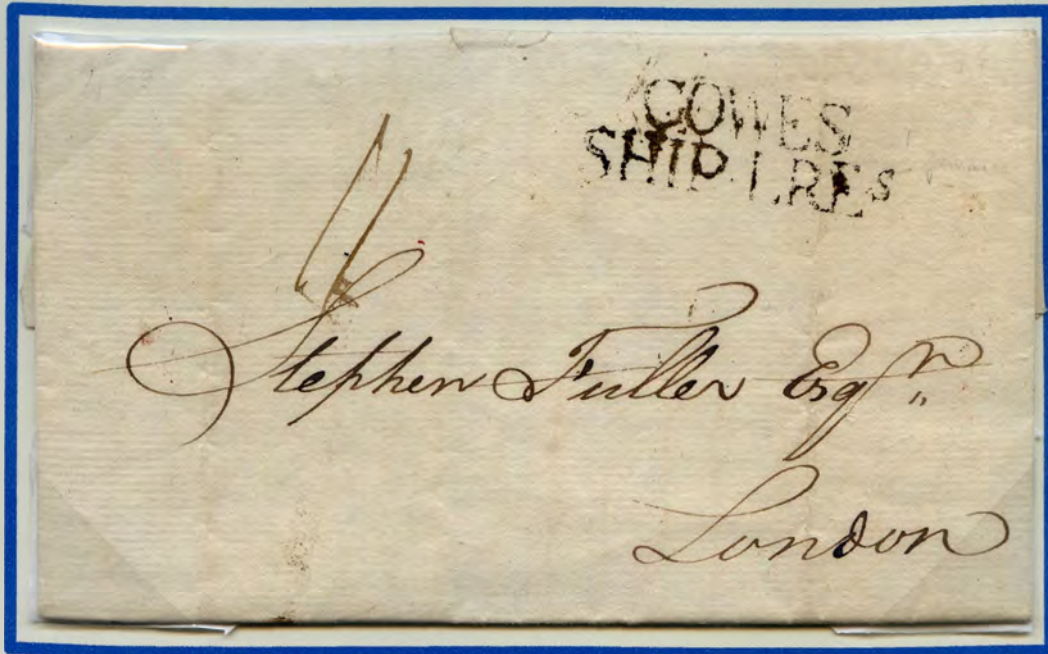 COWES
SHIP-LREs
11
Stephen Fuller Esqr
London